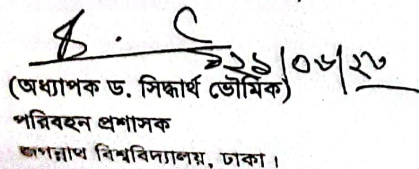 ২১/০৮/২৩
(অধ্যাপক ড. সিদ্ধার্থ ভৌমিক)
পরিবহন প্রশাসক
জগন্নাথ বিশ্ববিদ্যালয়, ঢাকা।